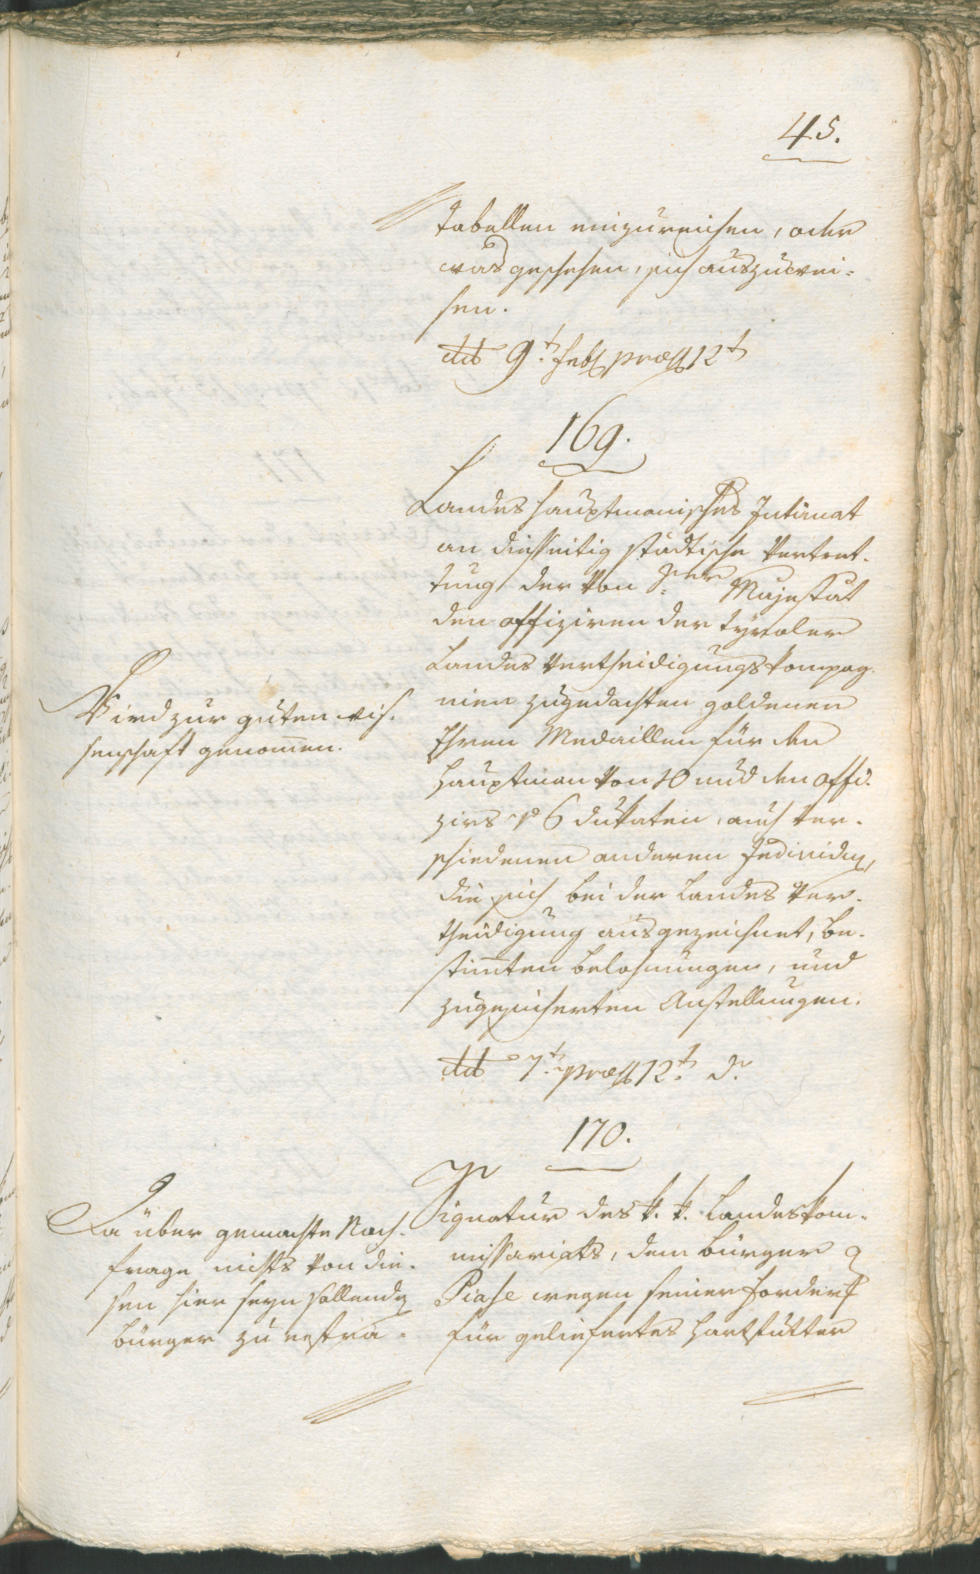 45.
tabellen einzureichen, oder
was geschehen, sich auszuwei-
sen.
ddt 9.t Feb. præs. 12.t
169.
Landeshauptmanisches Intimat
an diesseitig städtische Vertret-
tung der von Sr Majestät
den offiziren der tyroler
Landes Vertheidigungs kompag-
nien zugedachten goldenen
Ehren Medaillen für den
Hauptman von 10 und den offi-
zirs pr 6 dukaten, auch ver-
schiedenen anderen Individuen,
die sich bei der Landes Ver-
theidigung ausgezeichnet, be-
stimten belohnungen, und
zugesicherten Anstellungen.
ddt 7.t præs. 12.t d.
Wird zur guten wis-
senschaft genomen.
170.
Signatur des k. k. Landeskom-
missariats, dem bürger
Piase wegen seiner forderung
für geliefertes hartfutter
Da über gemachte Nach-
frage nichts von die-
sen hier seyn sollenden
bürger zu erfra-